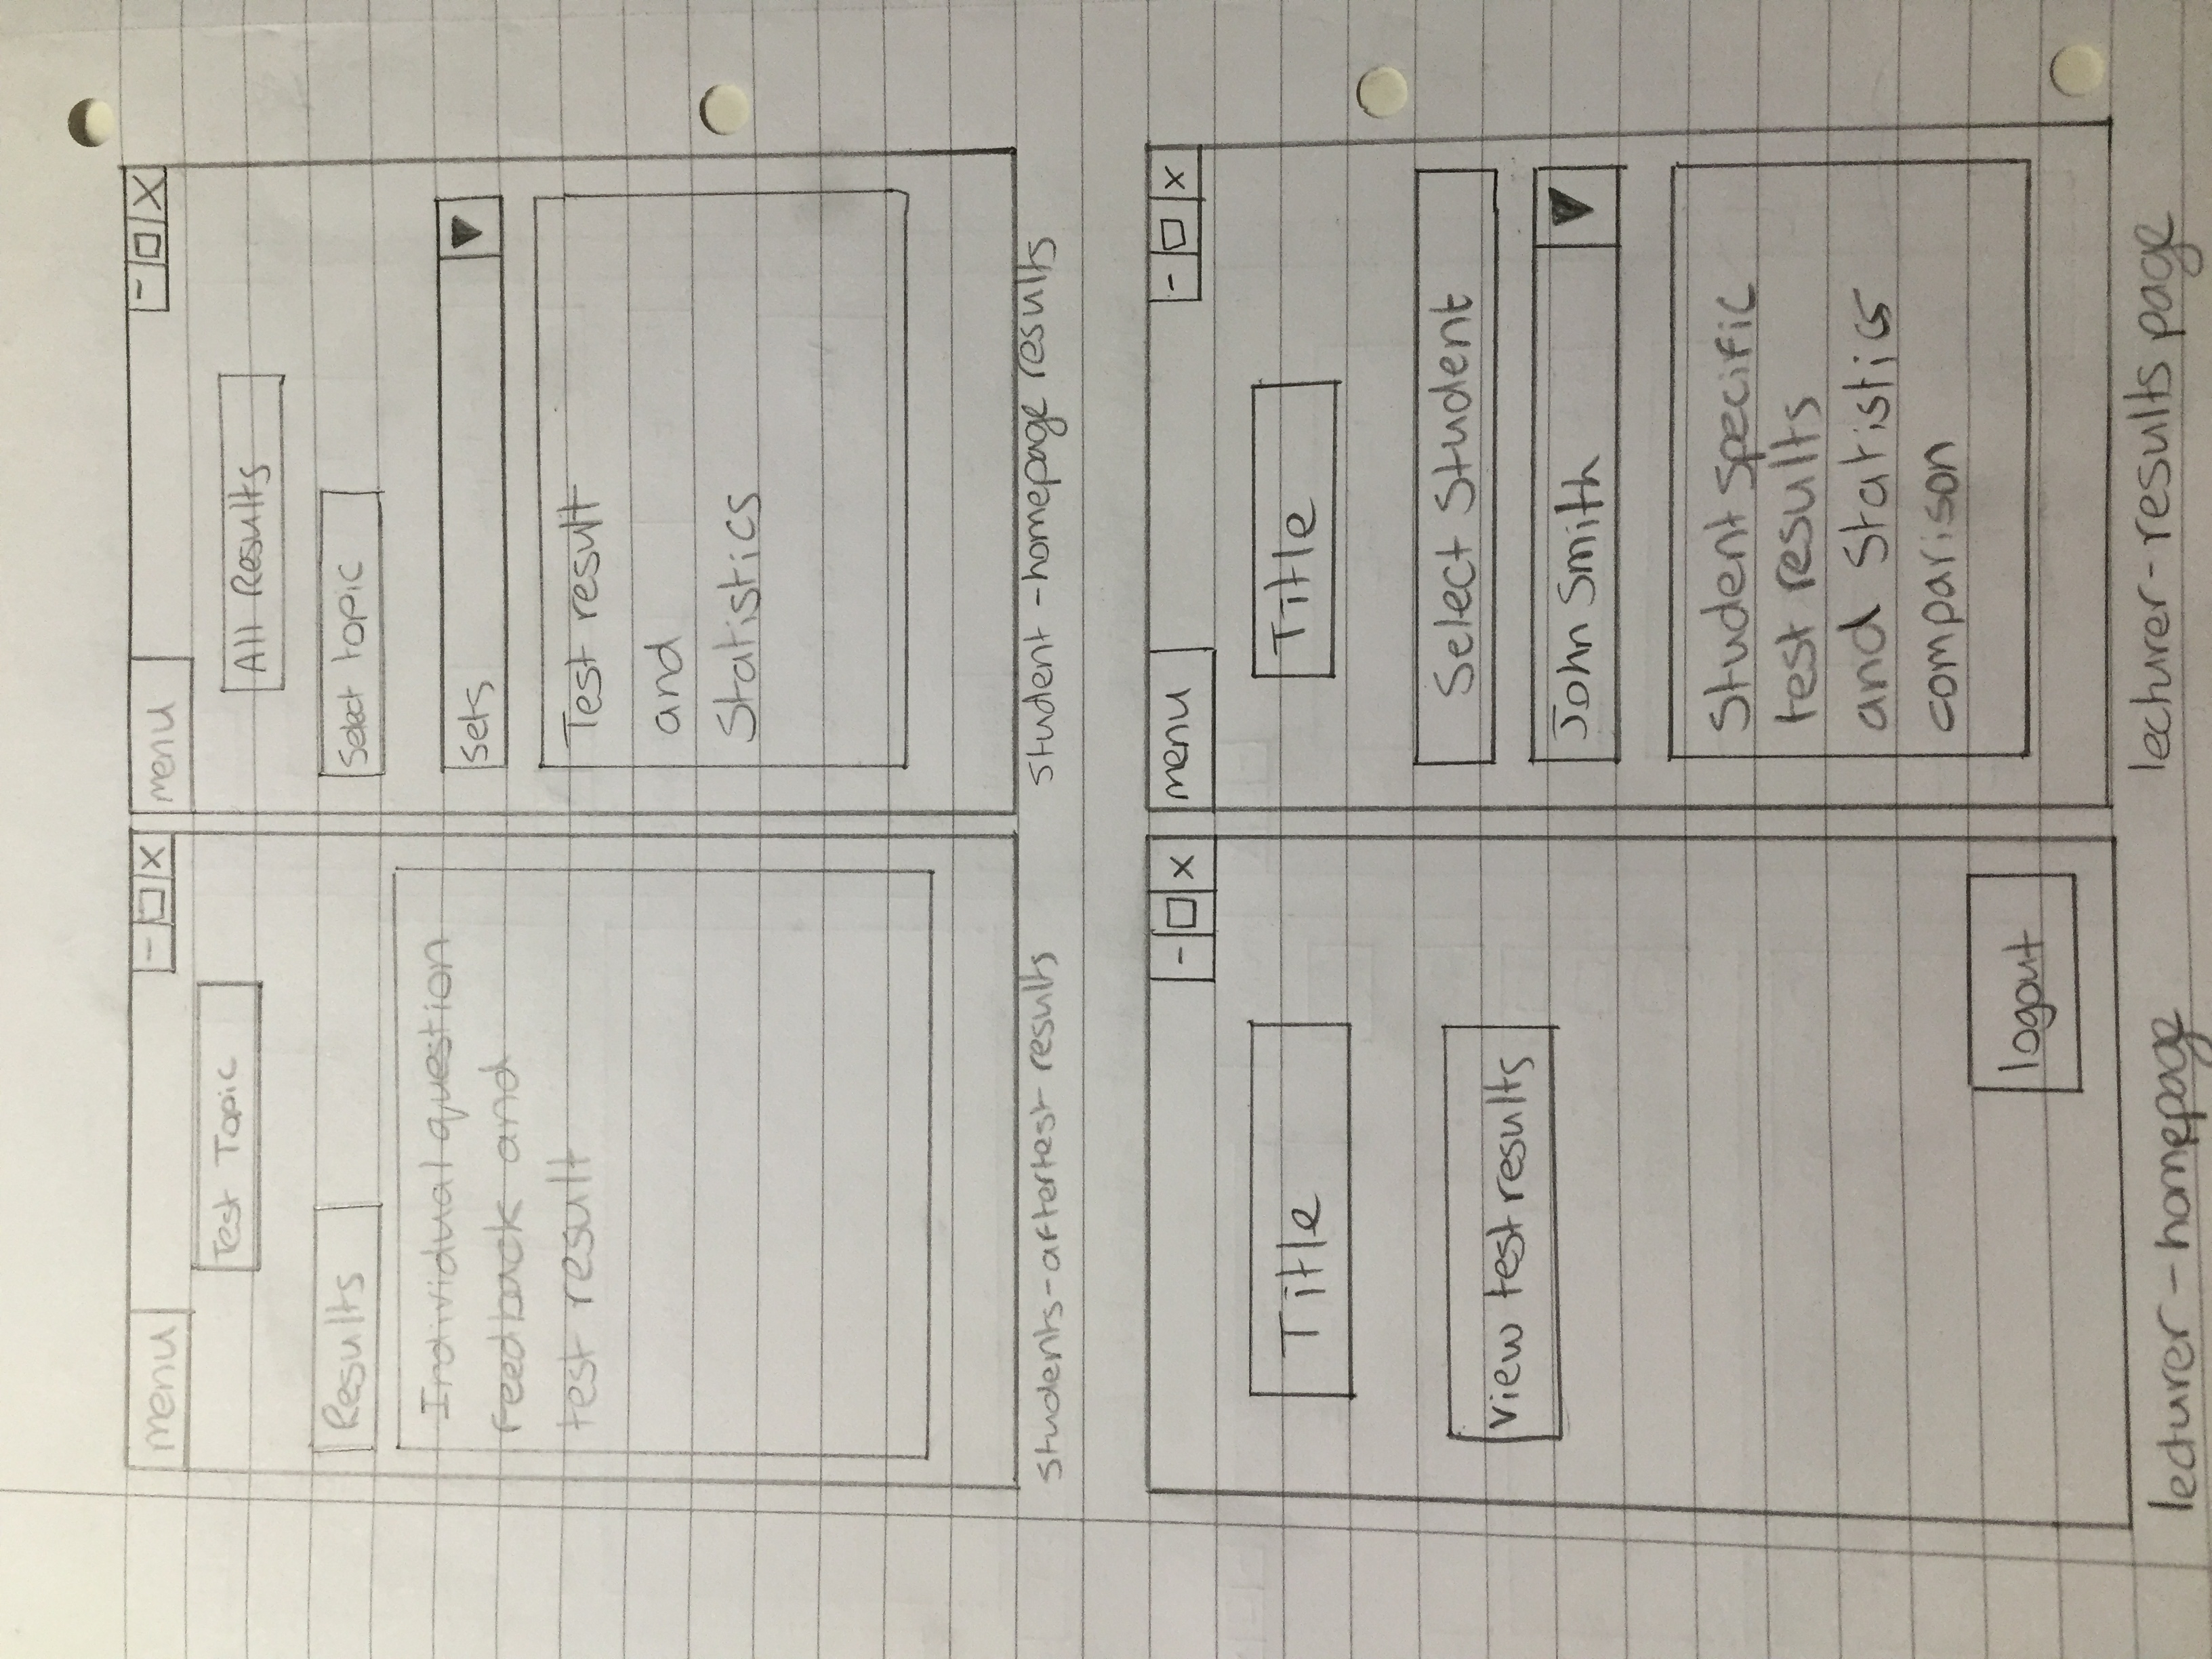 menu
- □ X
Test Topic
Results
Individual question
feedback and
test result
students-aftertest results
menu
- □ X
All Results
Select topic
Sets
Test result
and
Statistics
Student-homepage results
- □ X
Title
view test results
logout
lecturer-homepage
menu
- □ X
Title
Select Student
John Smith
Student specific
test results
and Statistics
comparison
lecturer-results page